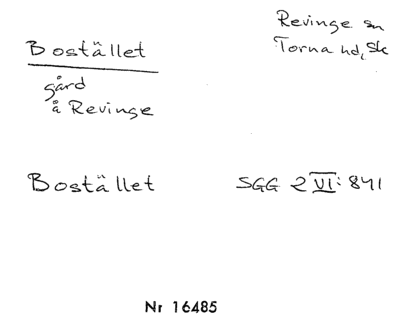 Bostället
Revinge sn
Torna hd, Sk
gård
å Revinge
Bostället
SGG 2 VI: 841
Nr 16485